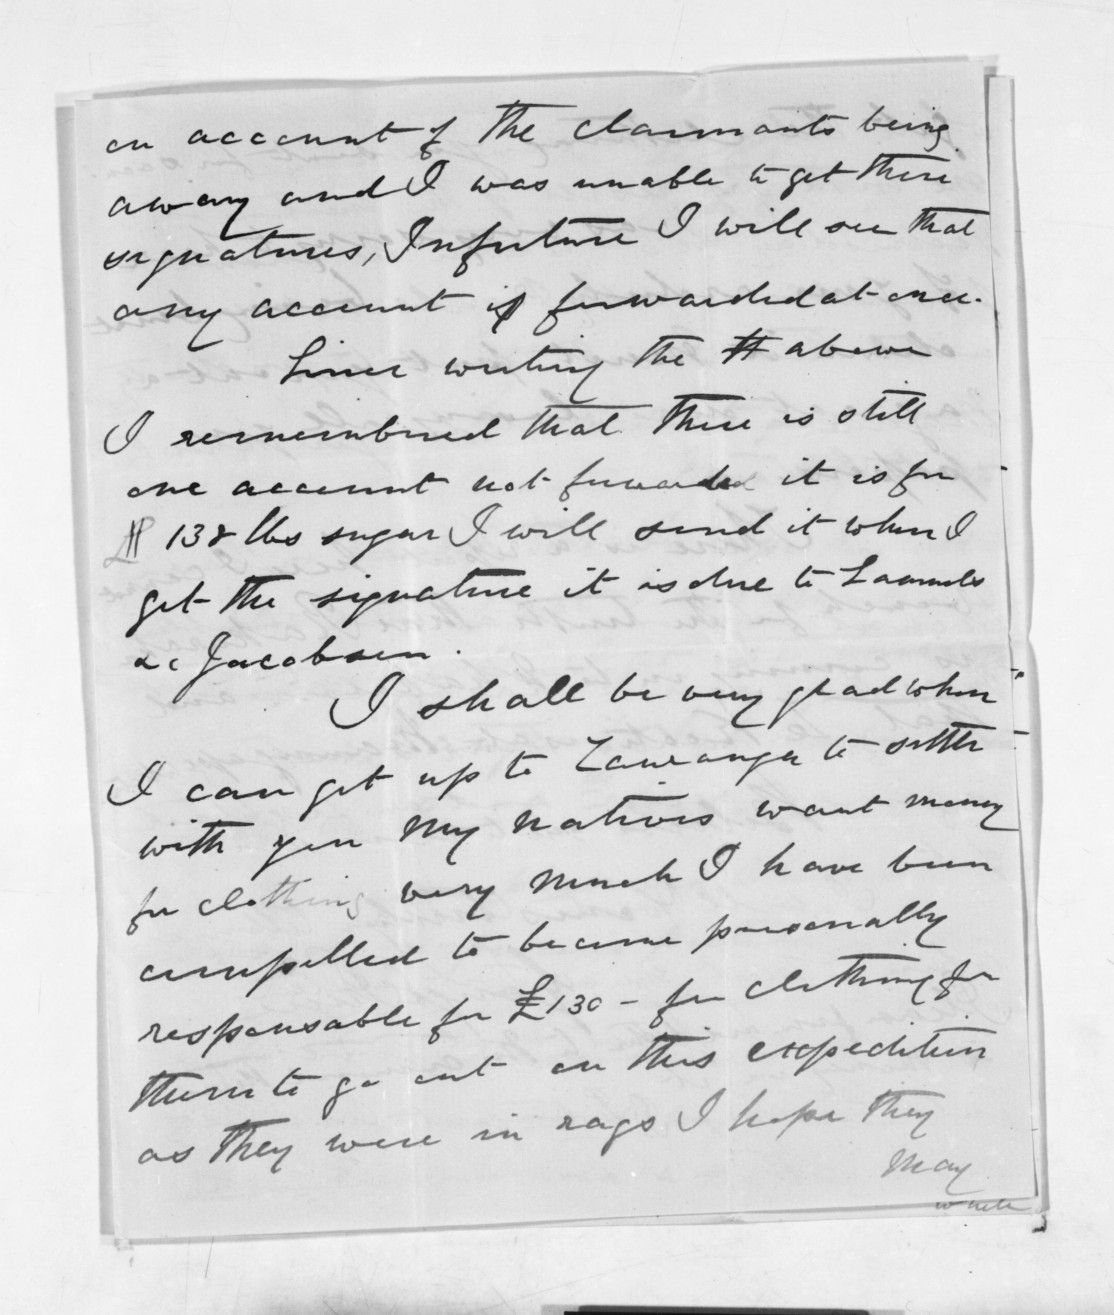 on account of the claimants being
away and I was unable to get there
signatures, Infuture I will see that
any account is forwarded at once.
Since writing the above
I remembered that there is still
one account not forwarded it is for
138 lbs sugar I will send it when I
get the signature it is due to
& Jacobsen.
I shall be very glad when
I can get up to Tauranga to settle
with you My natives want money
for clothing very much I have been
compelled to become personally
responsable for £130 – for clothing for
them to go out on this expedition
as they were in rags I hope they
may